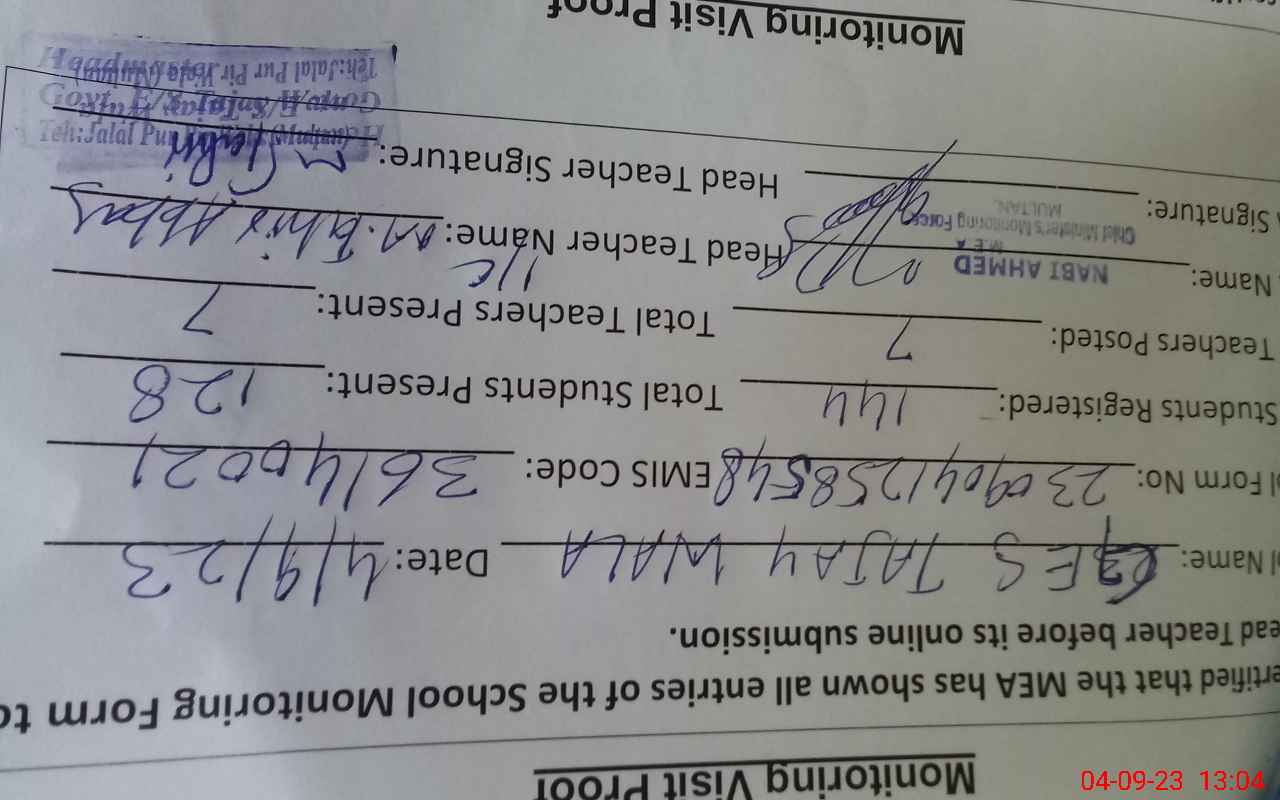 Monitoring Visit Proof
ertified that the MEA has shown all entries of the School Monitoring Form to
ead Teacher before its online submission.
l Name: GES TAJAY WALA Date: 4/9/23
l Form No: 2309041258548 EMIS Code: 36140021
Students Registered: 144 Total Students Present: 128
Teachers Posted: 7 Total Teachers Present: 7
Name: NABI AHMED Head Teacher Name: M. Abbas
M E A
Chief Minister's Monitoring Force
MULTAN.
Signature: Head Teacher Signature:
Teh: Jalal Pur Pir Wala (Multan)
Monitoring Visit Proof
04-09-23 13:04